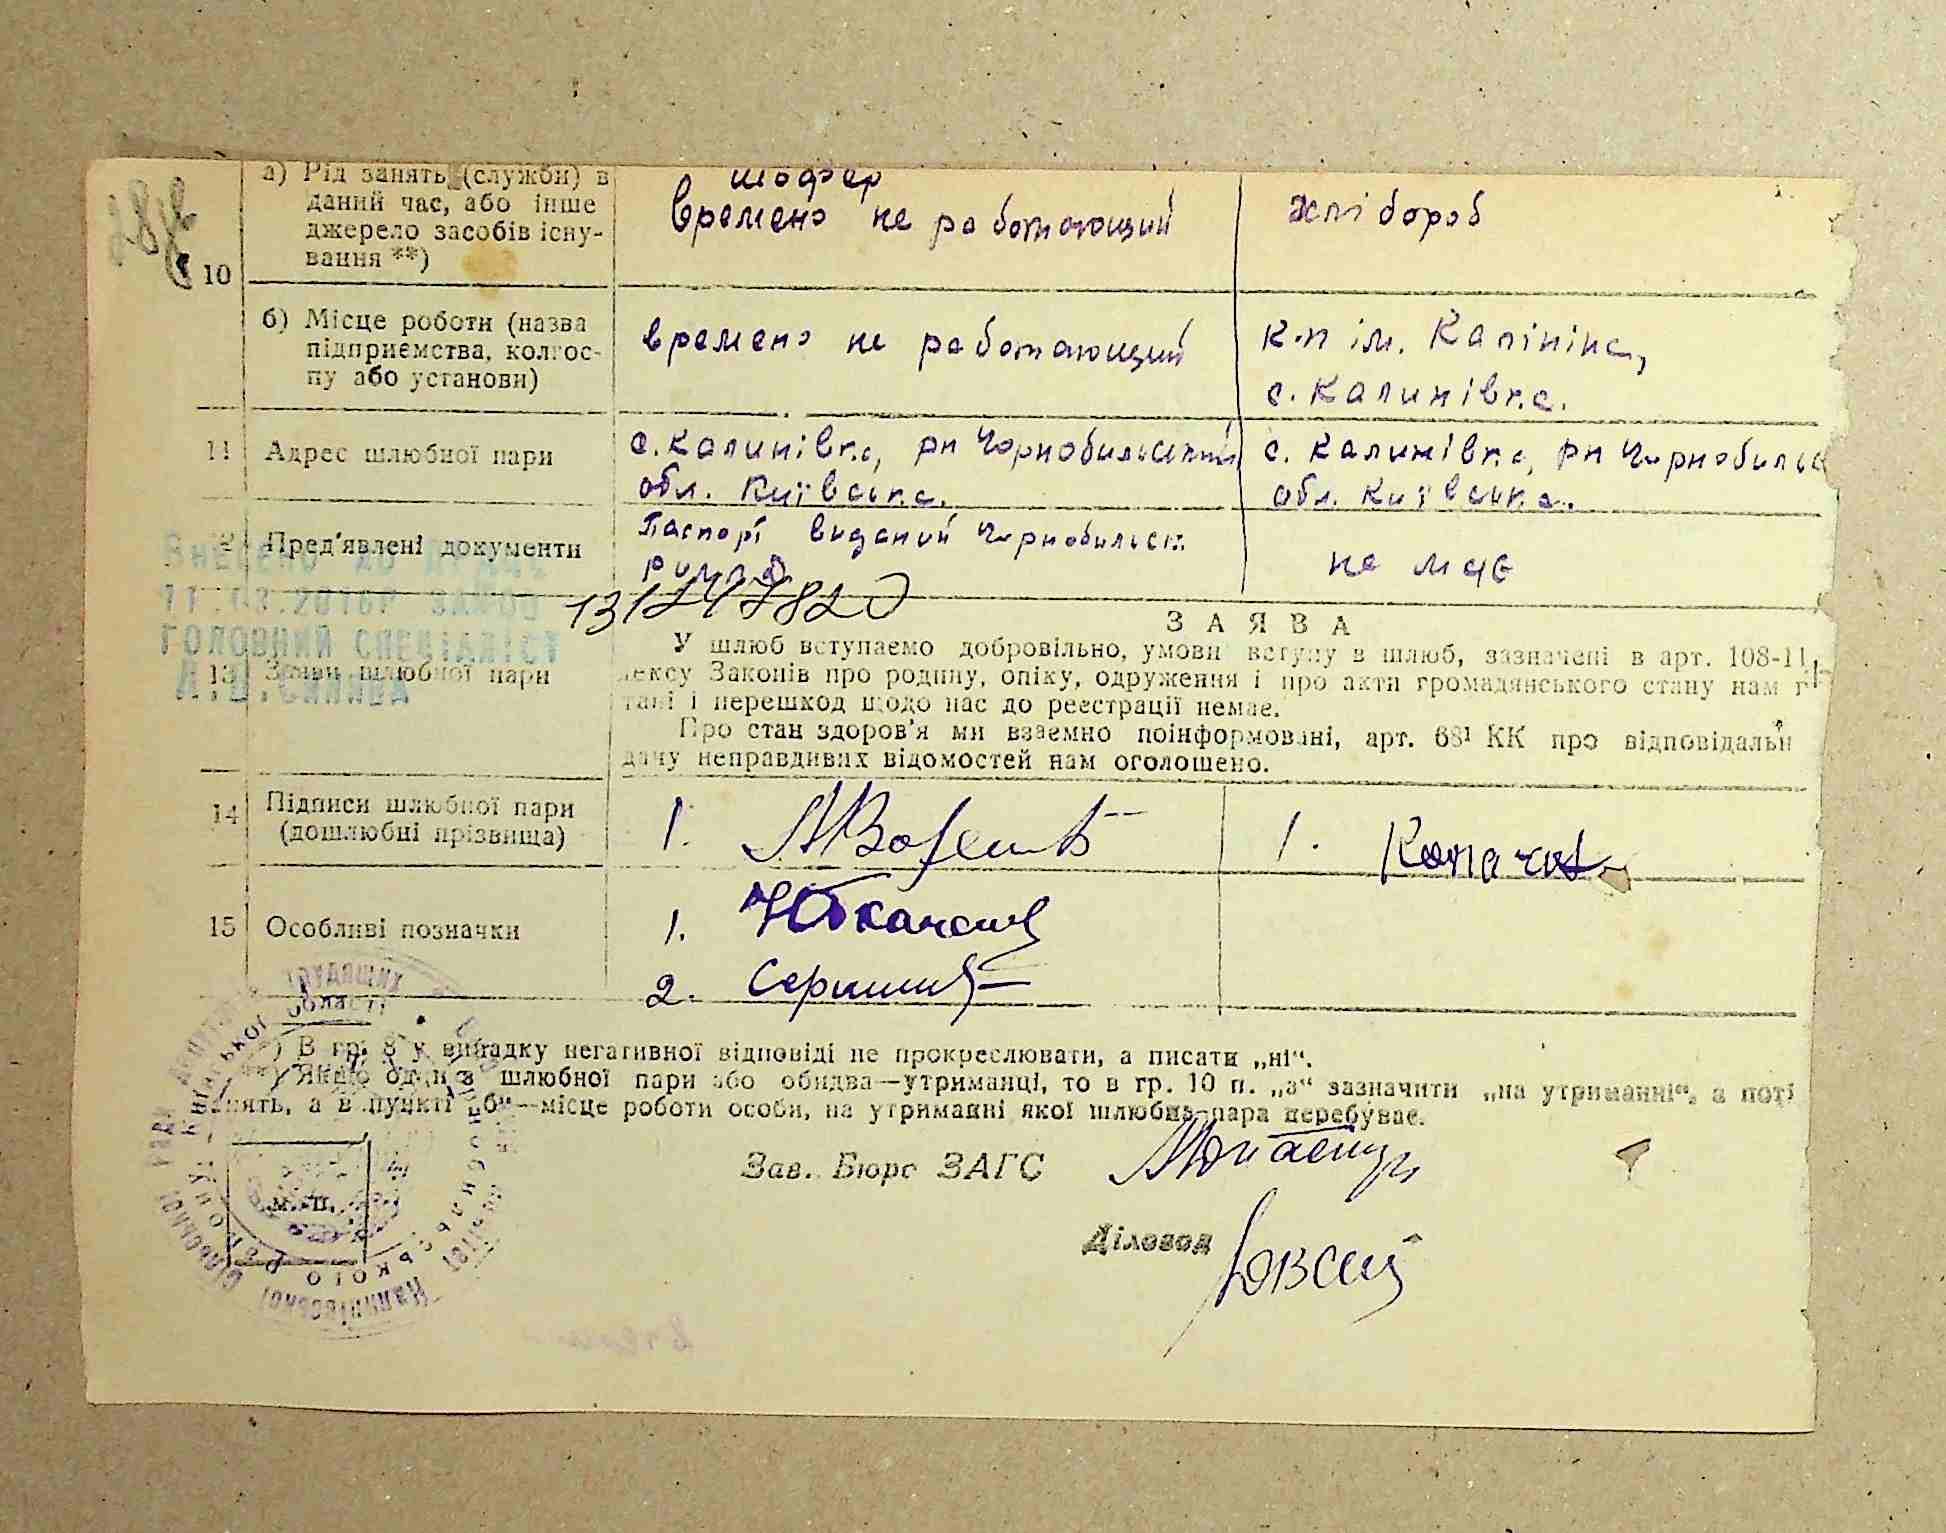 а) Рід занять (служби) в
даний час, або інше
джерело засобів існу-
вання **)
10
шофер
времено не работающий
хлібороб
б) Місце роботи (назва
підприємства, колгос-
пу або установи)
времено не работающий
к-п ім. Калініна,
с. Калинівка.
11
Адрес шлюбної пари
с. Калинівка, рн Чорнобильський
обл. Київська.
с. Калинівка, рн Чорнобильс
обл. Київська.
Пред'явлені документи
Паспорт виданий Чорнобильск
не має
Внесено до
11.03.2016р
ГОЛОВНИЙ СПЕЦІАЛІСТ
13
Заяви шлюбної пари
ЗАЯВА
У шлюб вступаємо добровільно, умови вступу в шлюб, зазначені в арт. 108-11
лексу Законів про родину, опіку, одруження і про акти громадянського стану нам г
тані і перешкод щодо нас до реєстрації немає.
Про стан здоров'я ми взаємно поінформовані, арт. 68¹ КК про відповідальн
дачу неправдивих відомостей нам оголошено.
14
Підписи шлюбної пари
(дошлюбні прізвища)
1.
1.
15
Особливі позначки
1.
2.
*) В гр. 8 у випадку негативної відповіді не прокреслювати, а писати „ні“.
**) Якщо один з шлюбної пари або обидва—утриманці, то в гр. 10 п. „а“ зазначити „на утриманні“, а поті
занять, а в пункті „б“—місце роботи особи, на утриманні якої шлюбна пара перебуває.
Зав. Бюро ЗАГС
Діловод
м. п.